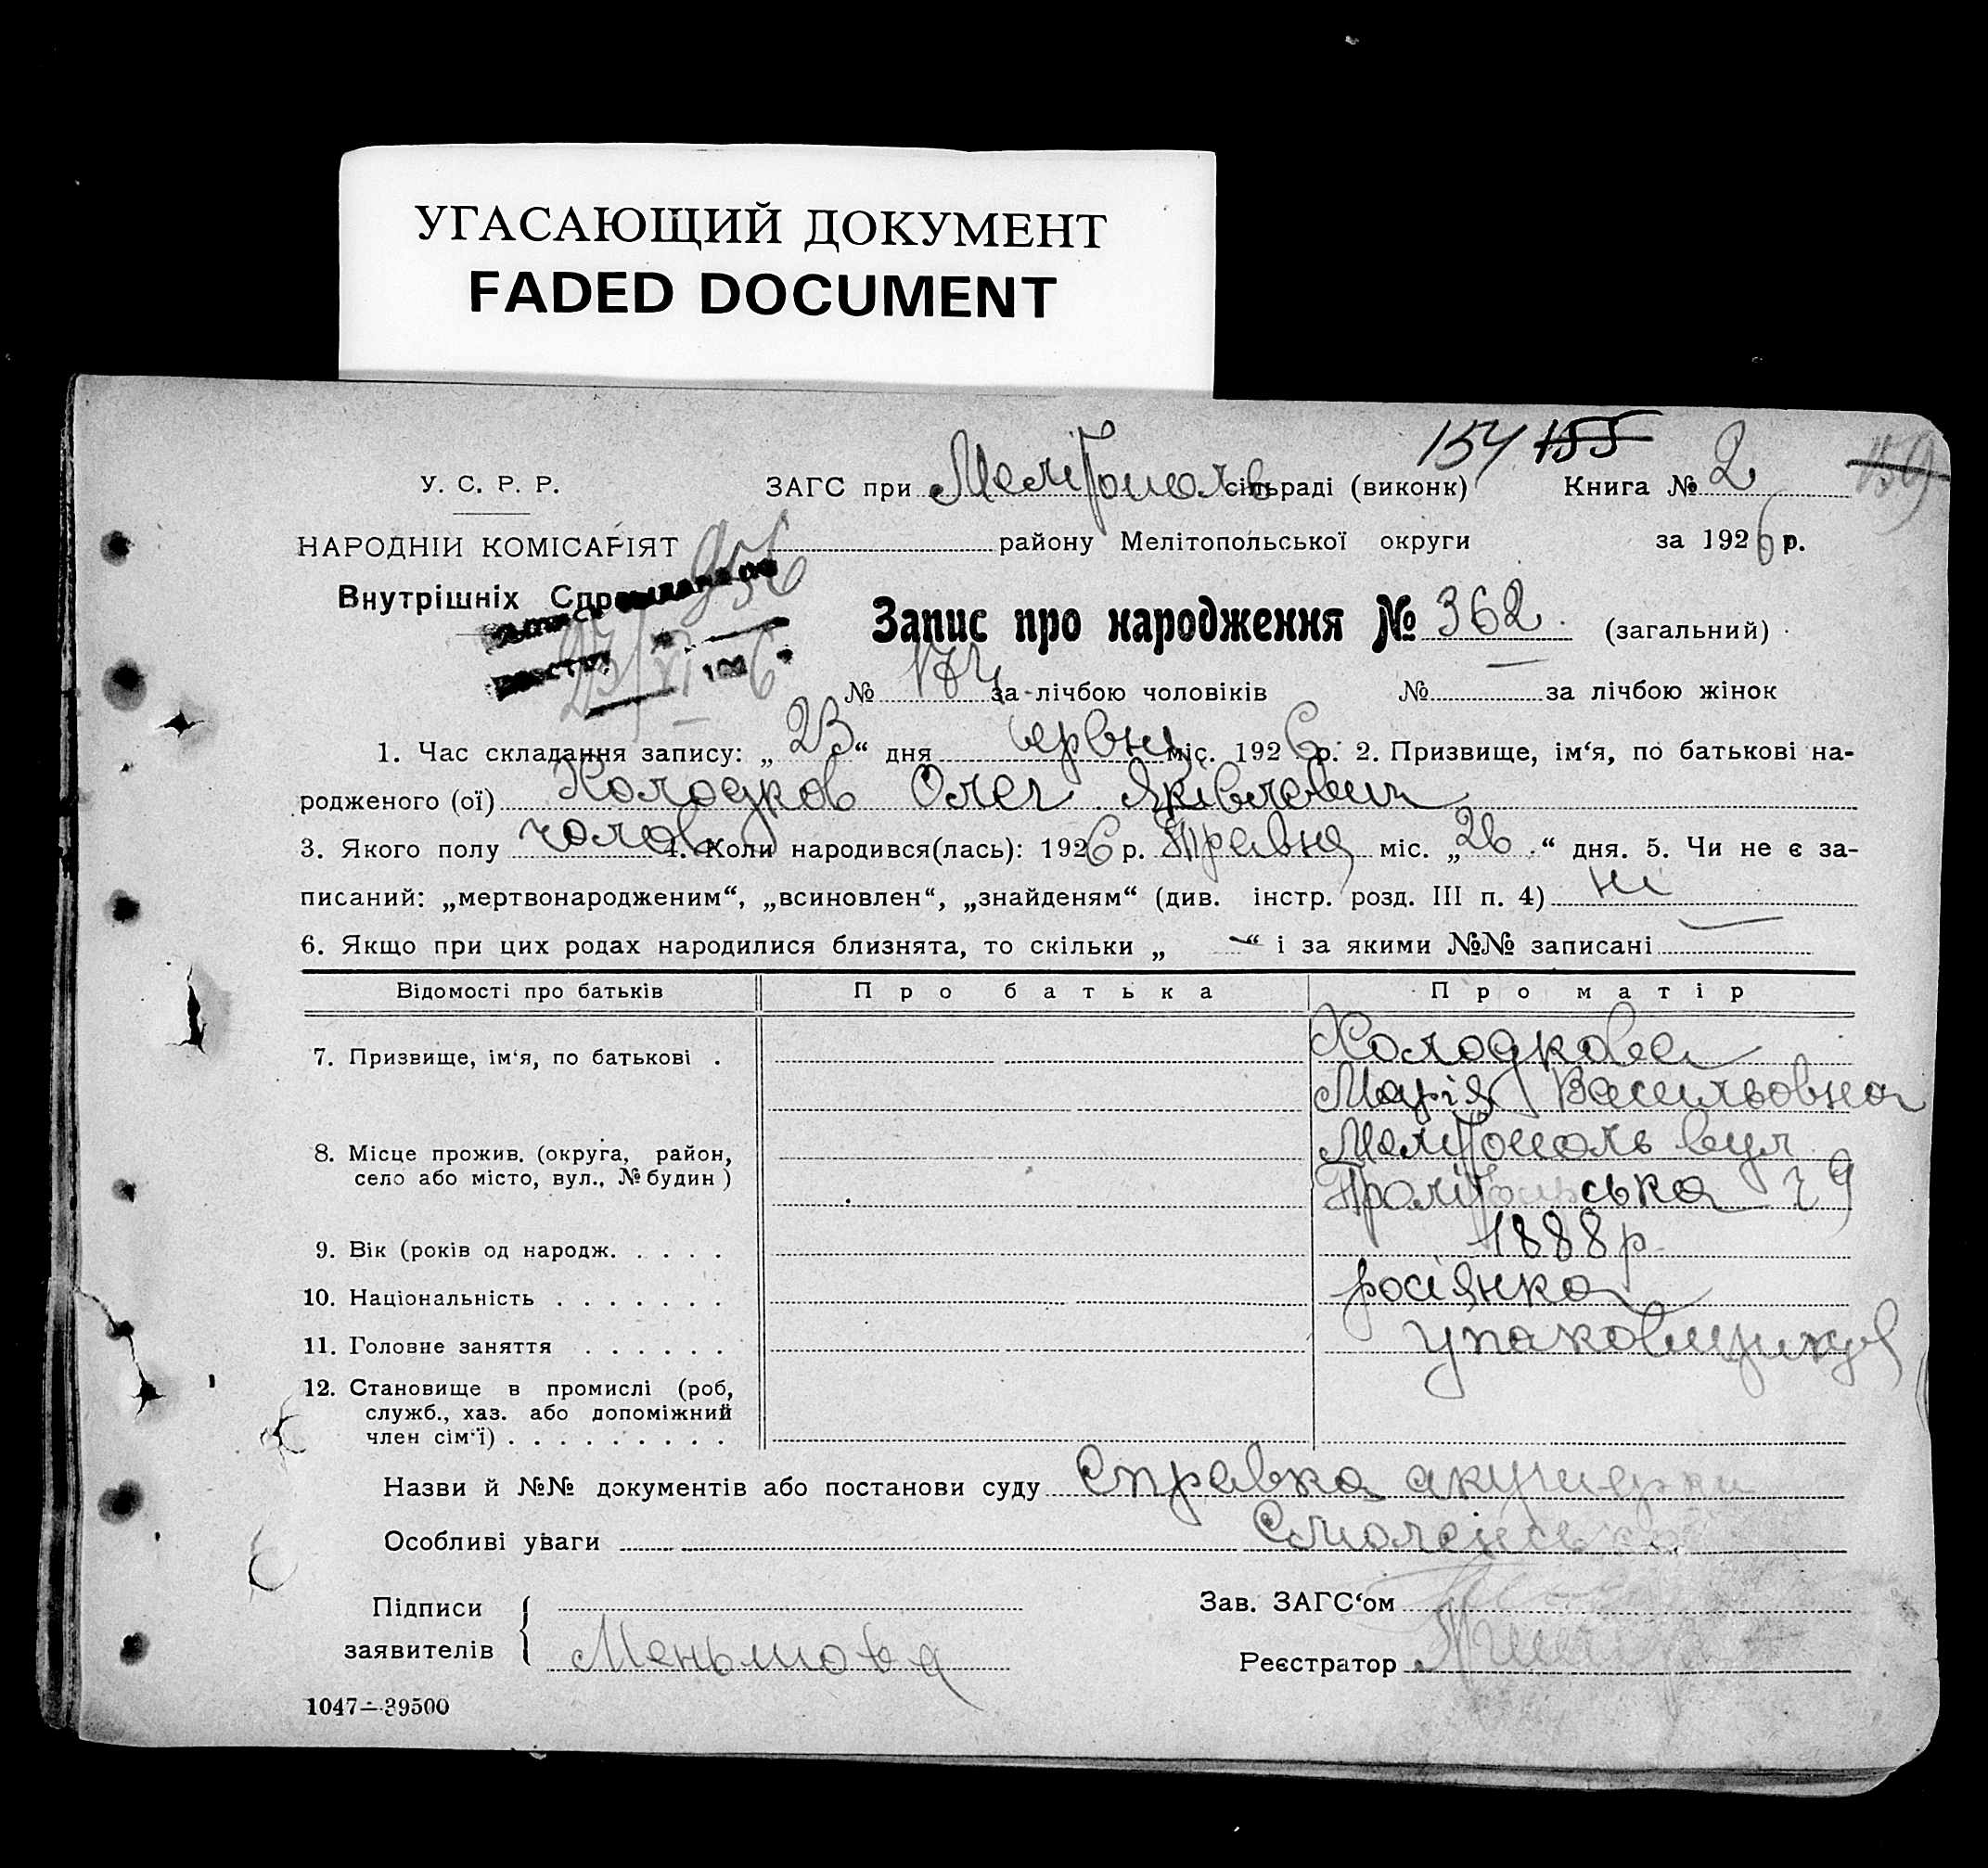 УГАСАЮЩИЙ ДОКУМЕНТ
FADED DOCUMENT
154 155 159
У. С. Р. Р. ЗАГС при Мелітополь сільраді (виконк) Книга № 2
НАРОДНІЙ КОМІСАРІЯТ району Мелітопольської округи за 1926 р.
Внутрішніх Спр
Запис про народження № 362. (загальний)
№ 174 за лічбою чоловіків № — за лічбою жінок
1. Час складання запису: „23“ дня червня міс. 1926 р. 2. Призвище, ім‘я, по батькові на-
родженого (ої) Холодков Олег Яківлевич
3. Якого полу чолов 4. Коли народився(лась): 1926 р. Травня міс. „26“ дня. 5. Чи не є за-
писаний: „мертвонародженим“, „всиновлен“, „знайденям“ (див. інстр. розд. III п. 4) ні
6. Якщо при цих родах народилися близнята, то скільки „ — “ і за якими №№ записані —
Відомості про батьків Про батька Про матір
7. Призвище, ім‘я, по батькові . Холодкова
Марія Васильовна
8. Місце прожив. (округа, район, Мелітополь вул
село або місто, вул., № будин) ська 79
9. Вік (років од народж. . . . . 1888 р
10. Національність . . . . . . . росіянка
11. Головне заняття . . . . . . упаковщиця
12. Становище в промислі (роб,
служб., хаз. або допоміжний
член сім‘ї) . . . . . . . . .
Назви й №№ документів або постанови суду Справка акушерки
Особливі уваги
Підписи Зав. ЗАГС‘ом
заявителів Меньшова Реєстратор
1047—39500